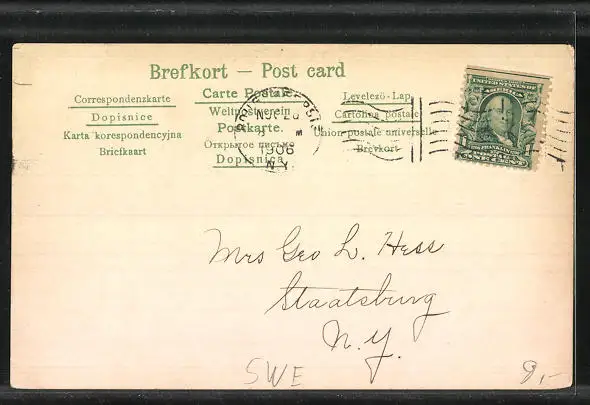 Brefkort — Post card
Correspondenzkarte
Dopisnice
Karta korespondencyjna
Briefkaart
Carte Postale
Weltpostverein
Postkarte.
Открытое письмо
Dopisnica
Levelezö-Lap
Cartolina postale
Union postale universelle
Brevkort
1906
N.Y.
Mrs Geo L. Hess
Staatsburg
N.Y.
SWE
9,-